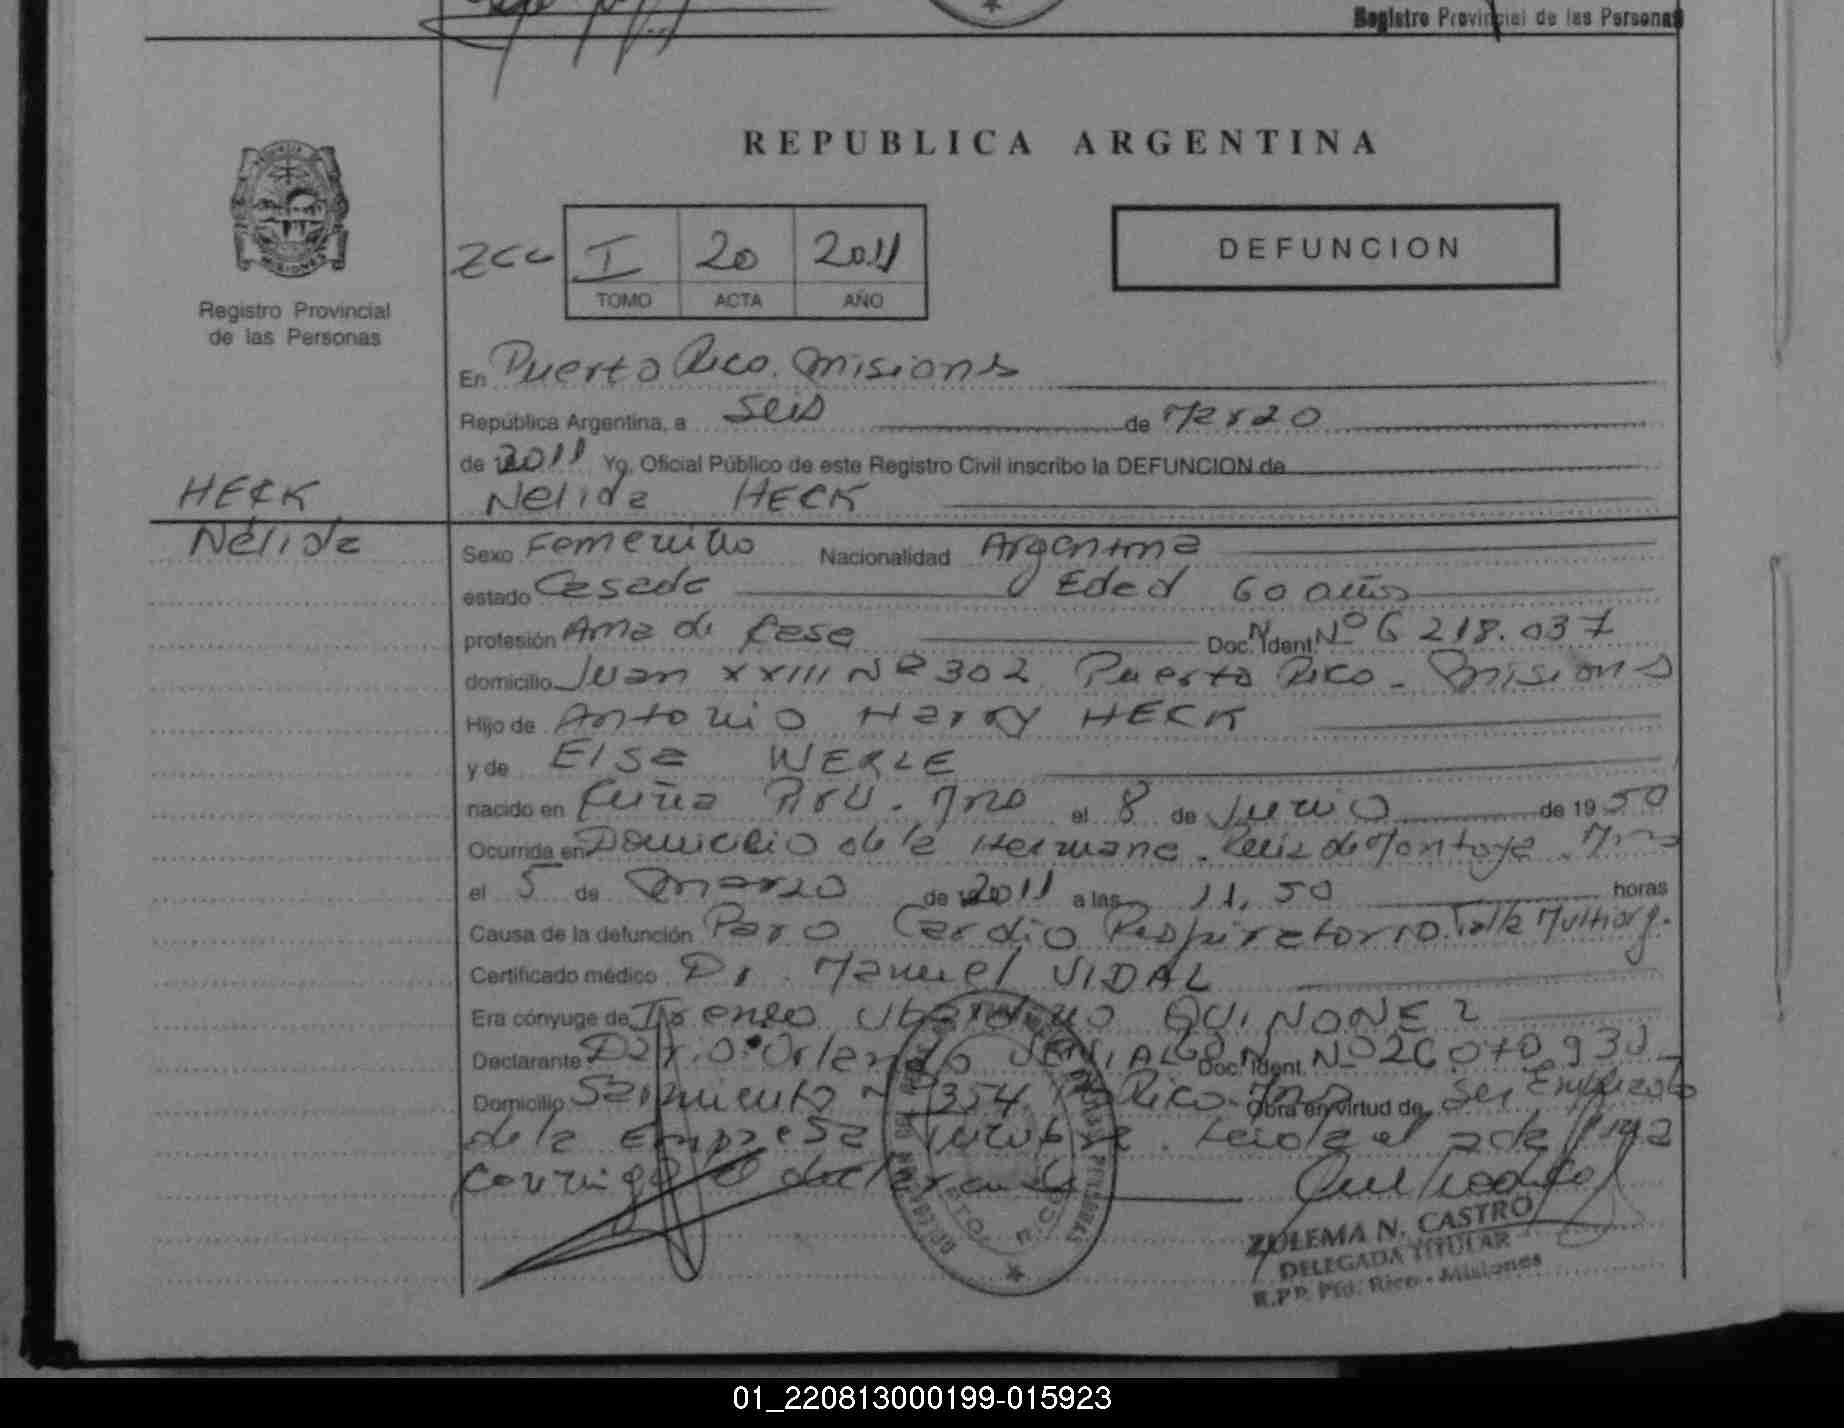 Registro Provincial de las Personas
REPUBLICA ARGENTINA
I 20 2011
TOMO ACTA AÑO
DEFUNCION
MISIONES
Registro Provincial
de las Personas
En Puerto Rico. Misiones
República Argentina, a seis de Marzo
de 2011 Yo, Oficial Público de este Registro Civil inscribo la DEFUNCION de
HECK
Nelida HECK
Nélida
Sexo Femenino Nacionalidad Argentina
estado Casada Edad 60 años
profesión Ama de Casa Doc. Ident. Nº 6 218.037
domicilio Juan XXIII Nº 302 Puerto Rico - Misiones
Hijo de Antonio Harry HECK
y de Elsa WERLE
nacido en el 8 de Junio de 1950
Ocurrida en Domicilio de la Hermana. Ruiz de Montoya. Mnes
el 5 de Marzo de 2011 a las 11,50 horas
Causa de la defunción Paro Cardio Respiratorio. Falla Multiorg.
Certificado médico Dr. Manuel VIDAL
Era cónyuge de Ireneo Ubaldino QUINONEZ
Declarante Dario Orlando Doc. Ident. Nº 26 070.930
Domicilio Sarmiento Nº 354 Rico Obra en virtud de Ser Empleado
de la Empresa Leida el acta firma
conmigo el declarante
ZULEMA N. CASTRO
DELEGADA TITULAR
R.P.P. Pto. Rico - Misiones
01_220813000199-015923